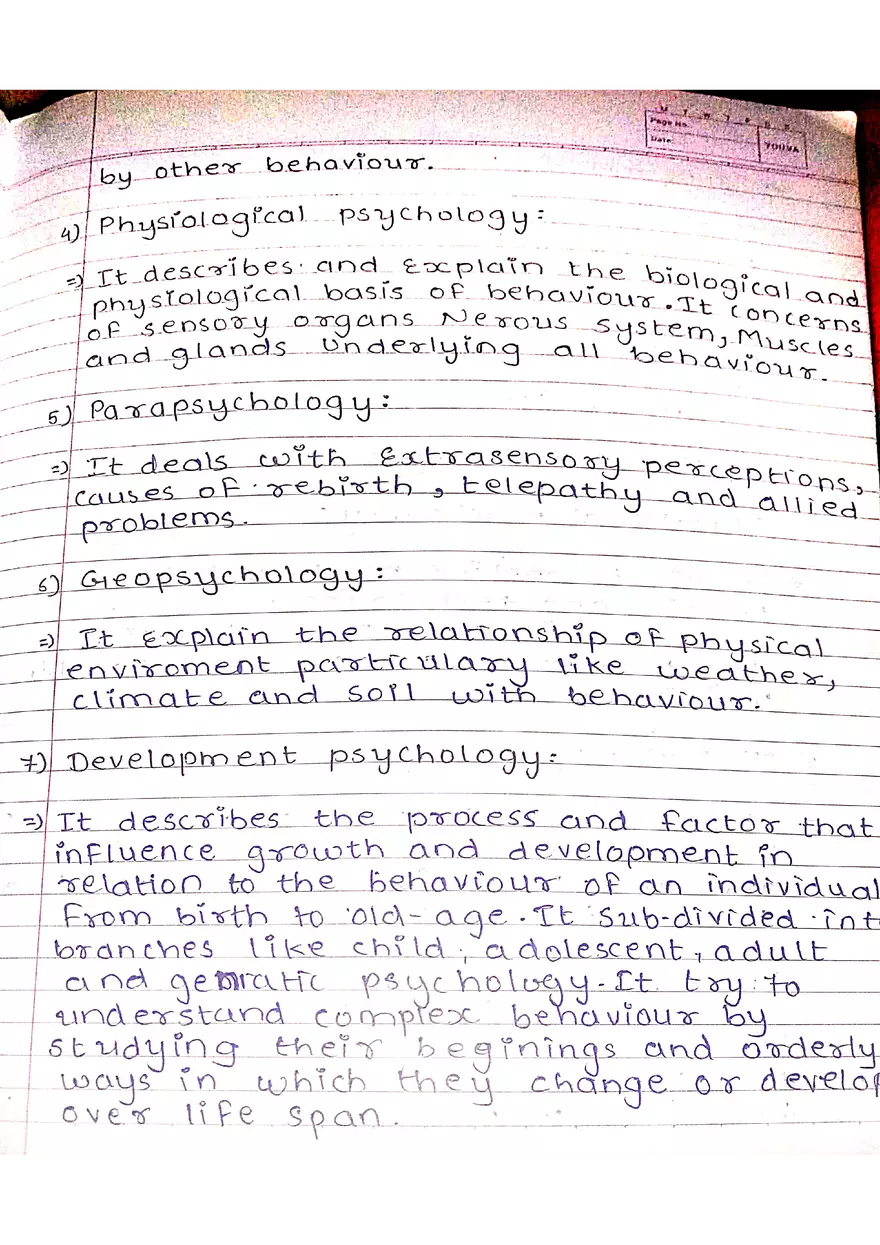 Page No.
Date
YOUVA
by other behaviour.
4) Physiological psychology:
=) It describes and Explain the biological and
physiological basis of behaviour. It concerns
of sensory organs Nerous system, Muscles
and glands Underlying all behaviour.
5) Parapsychology:
=) It deals with Extrasensory perceptions,
causes of rebirth, telepathy and allied
problems.
6) Geopsychology:
=) It Explain the relationship of physical
enviroment particulary like weather,
climate and soil with behaviour.
7) Development psychology:
=) It describes the process and factor that
influence growth and development in
relation to the behaviour of an individual
From birth to old-age. It sub-divided int
branches like child, adolescent, adult
and psychology. It try to
understand complex behaviour by
studying their beginings and orderly
ways in which they change or develop
over life span.